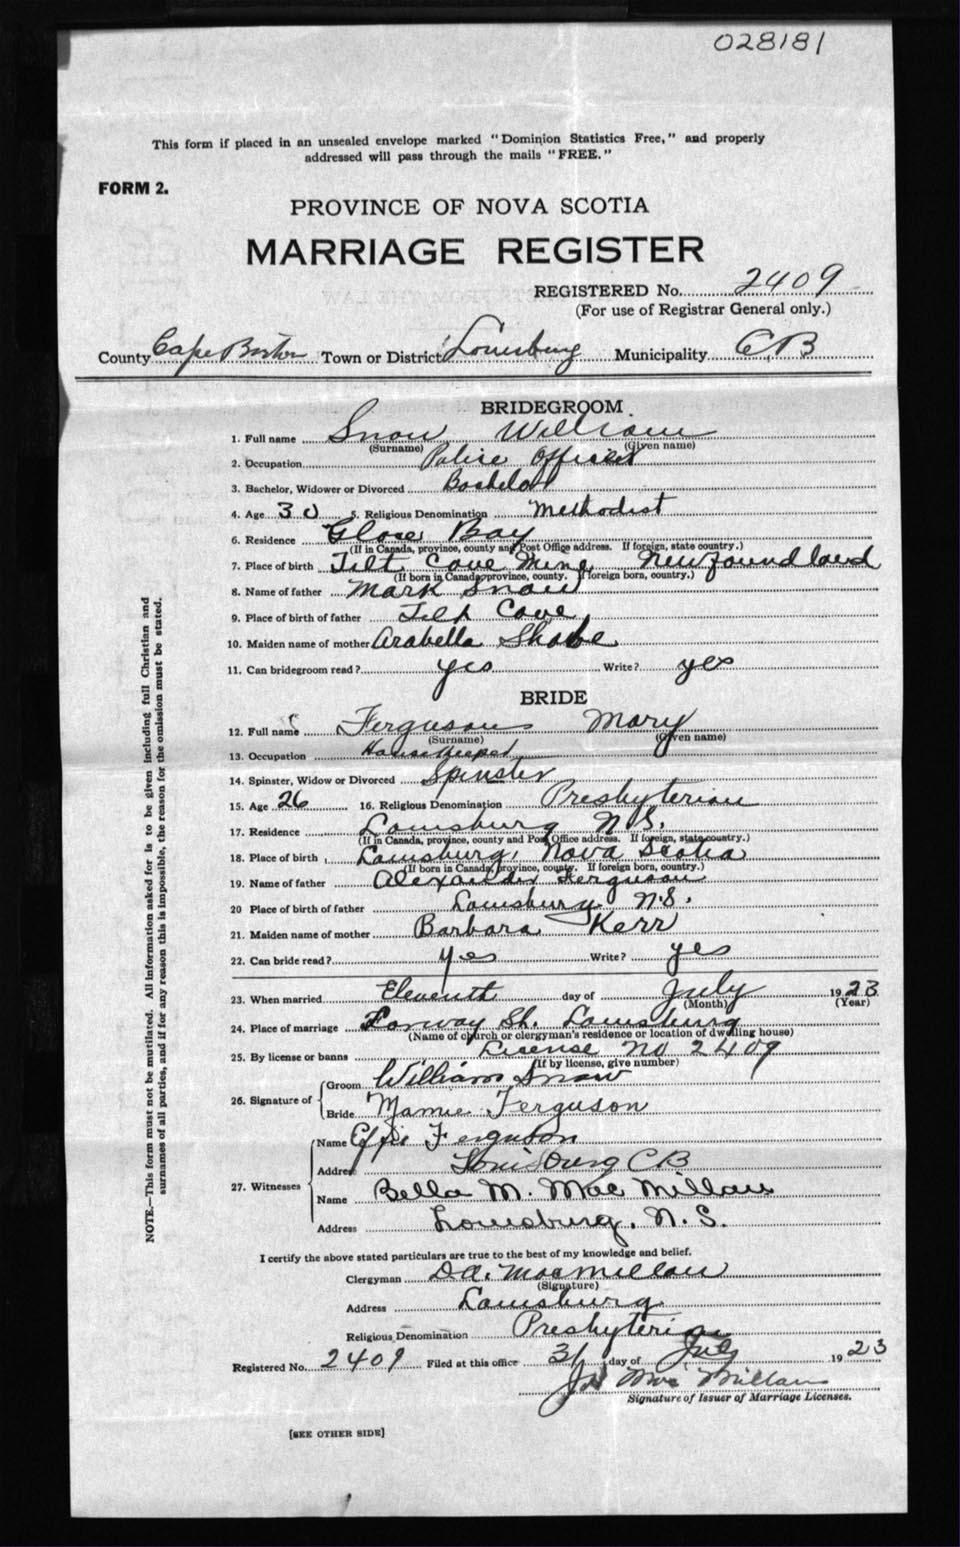 028181
This form if placed in an unsealed envelope marked "Dominion Statistics Free," and properly
addressed will pass through the mails "FREE."
FORM 2.
PROVINCE OF NOVA SCOTIA
MARRIAGE REGISTER
REGISTERED No. 2409
(For use of Registrar General only.)
County Cape Breton Town or District Louisburg Municipality C.B
BRIDEGROOM
1. Full name Snow William
(Surname) (Given name)
2. Occupation Police Officer
3. Bachelor, Widower or Divorced Bachelor
4. Age 30 5. Religious Denomination Methodist
6. Residence Glace Bay
(If in Canada, province, county and Post Office address. If foreign, state country.)
7. Place of birth Tilt Cove Mine Newfoundland
(If born in Canada, province, county. If foreign born, country.)
8. Name of father Mark Snow
9. Place of birth of father Tilt Cove
10. Maiden name of mother Arabella
11. Can bridegroom read? yes Write? yes
BRIDE
12. Full name Ferguson Mary
(Surname) (Given name)
13. Occupation Housekeeper
14. Spinster, Widow or Divorced Spinster
15. Age 26 16. Religious Denomination Presbyterian
17. Residence Louisburg N.S.
(If in Canada, province, county and Post Office address. If foreign, state country.)
18. Place of birth Louisburg, Nova Scotia
(If born in Canada, province, county. If foreign born, country.)
19. Name of father Alexander Ferguson
20 Place of birth of father Louisburg N.S.
21. Maiden name of mother Barbara Kerr
22. Can bride read? yes Write? yes
23. When married Eleventh day of July 1923
(Month) (Year)
24. Place of marriage St. Louisburg
(Name of church or clergyman's residence or location of dwelling house)
25. By license or banns License no 2409
(If by license, give number)
26. Signature of Groom William Snow
Bride Mamie Ferguson
27. Witnesses Name Effie Ferguson
Address Louisburg CB
Name Bella M. MacMillan
Address Louisburg, N.S.
I certify the above stated particulars are true to the best of my knowledge and belief.
Clergyman D.A. MacMillan
(Signature)
Address Louisburg
Religious Denomination Presbyterian
Registered No. 2409 Filed at this office 31 day of July 1923
MacMillan
Signature of Issuer of Marriage Licenses.
[SEE OTHER SIDE]
NOTE.—This form must not be mutilated. All information asked for is to be given including full Christian and
surnames of all parties, and if for any reason this is impossible, the reason for the omission must be stated.